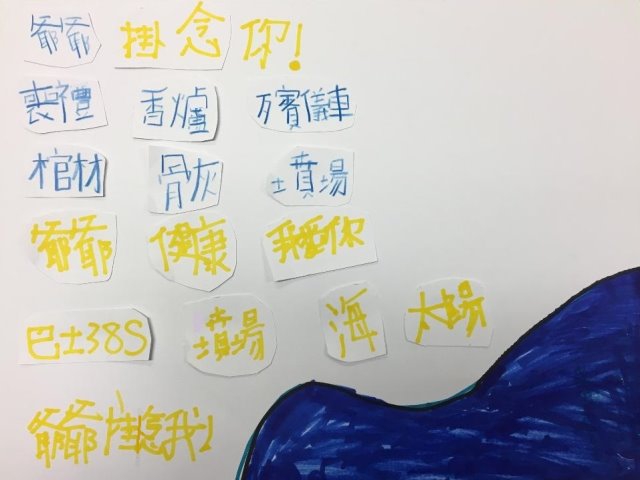 爺爺 掛念你!
喪禮 香爐 殯儀車
棺材 骨灰 墳場
爺爺 健康 我愛你
巴士38S 墳場 海 太陽
爺爺掛念我!